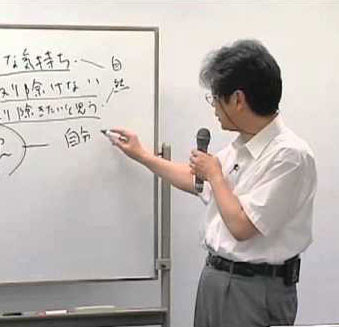 な気持ち 自然
り除けない
り除きたいと思う
自分